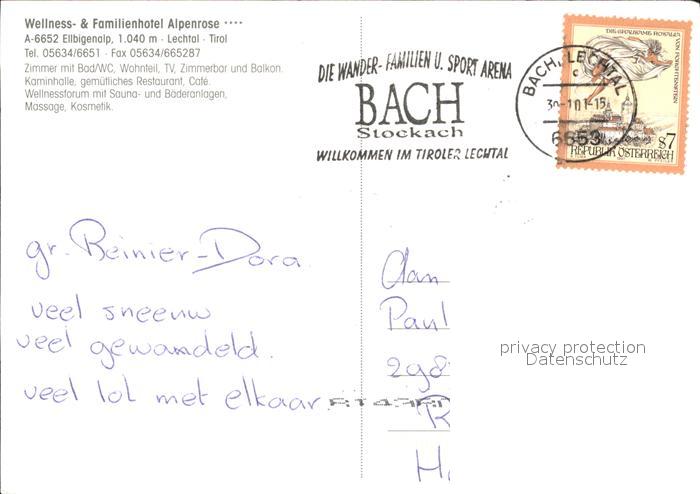 Wellness- & Familienhotel Alpenrose ····
A-6652 Ellbigenalp, 1.040 m · Lechtal · Tirol
Tel. 05634/6651 · Fax 05634/665287
Zimmer mit Bad/WC, Wohnteil, TV, Zimmerbar und Balkon.
Kaminhalle, gemütliches Restaurant, Café.
Wellnessforum mit Sauna- und Bäderanlagen,
Massage, Kosmetik.
DIE WANDER- FAMILIEN U. SPORT ARENA
BACH
Stockach
WILLKOMMEN IM TIROLER LECHTAL
BACH, LECHTAL
c
6653
DIE GRAUSAME ROSALIA
VON FORCHTENSTEIN
S7
REPUBLIK ÖSTERREICH
gr. Reinier-Dora
veel sneeuw
veel gewandeld.
veel lol met elkaar.
Aan
Paul
298
R
H.
privacy protection
Datenschutz